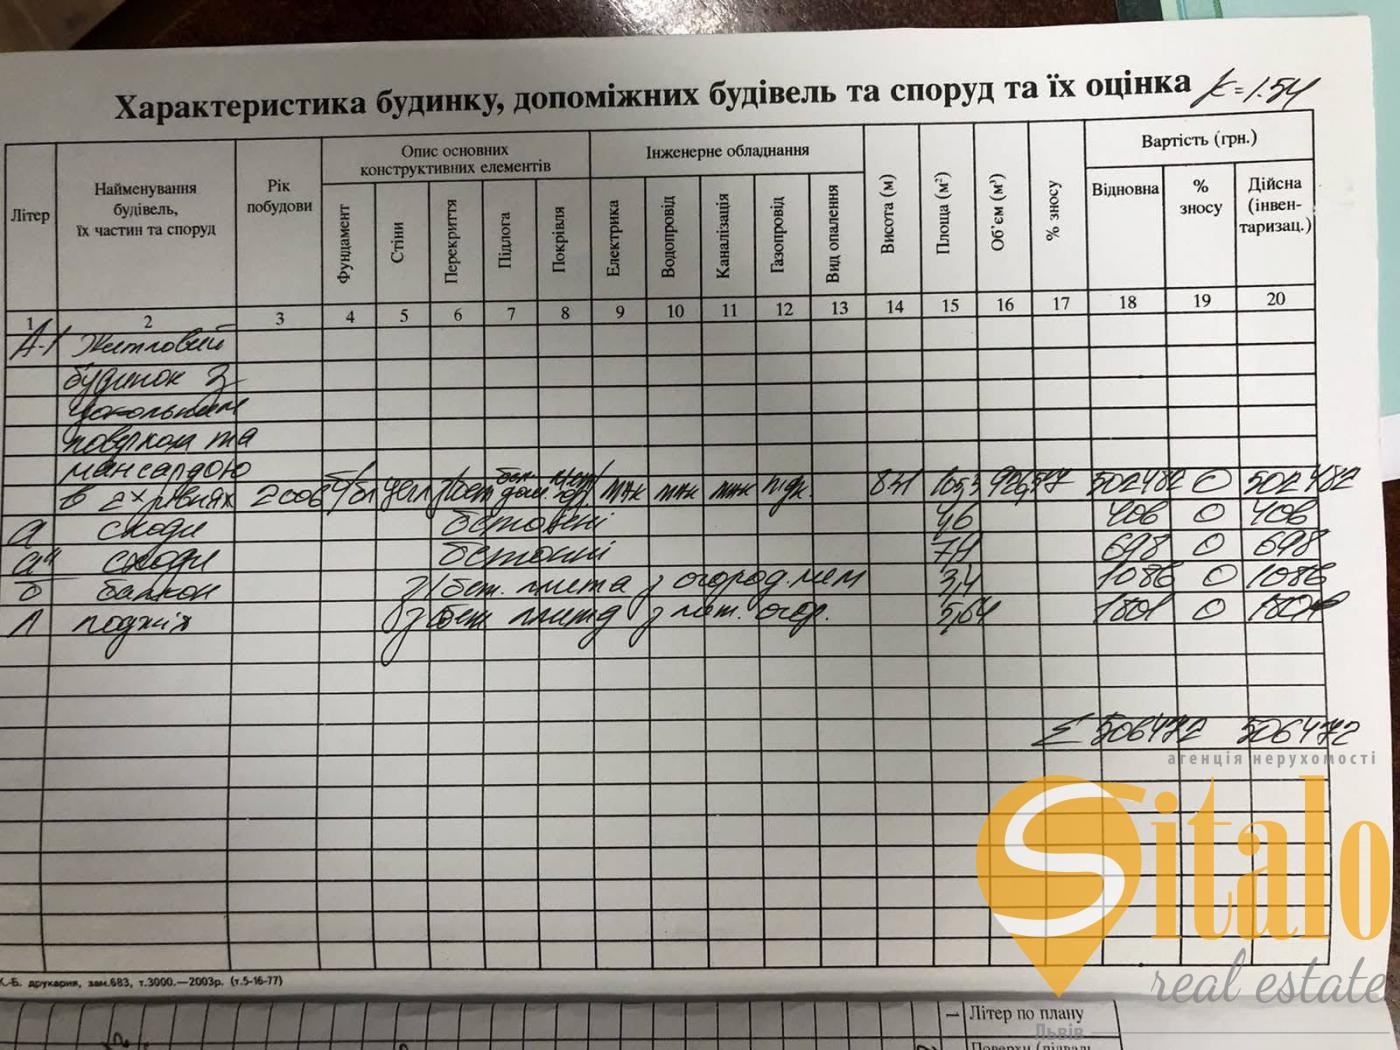 Характеристика будинку, допоміжних будівель та споруд та їх оцінка к=1.54
Літер
Найменування
будівель,
їх частин та споруд
Рік
побудови
Опис основних
конструктивних елементів
Інженерне обладнання
Висота (м)
Площа (м²)
Об'єм (м³)
% зносу
Вартість (грн.)
Фундамент
Стіни
Перекриття
Підлога
Покрівля
Електрика
Водопровід
Каналізація
Газопровід
Вид опалення
Відновна
%
зносу
Дійсна
(інвен-
таризац.)
1 2 3 4 5 6 7 8 9 10 11 12 13 14 15 16 17 18 19 20
А-1 Житловий
будинок з
цокольним
поверхом та
мансардою
в 2х рівнях 2006 502482 0 502482
а сходи бетонні 4,6 406 0 406
сходи бетонні 698 0 698
б балкон з/бет. плита з огород. мет 3,4 1086 0 1086
Л лоджія з/бет плита з мет. огор. 5,64 1801 0
Σ 506472 506472
агенція нерухомості
Sitalo
real estate
Львів
К.-Б. друкарня, зам.683, т.3000.—2003р. (т.5-16-77)
1 Літер по плану